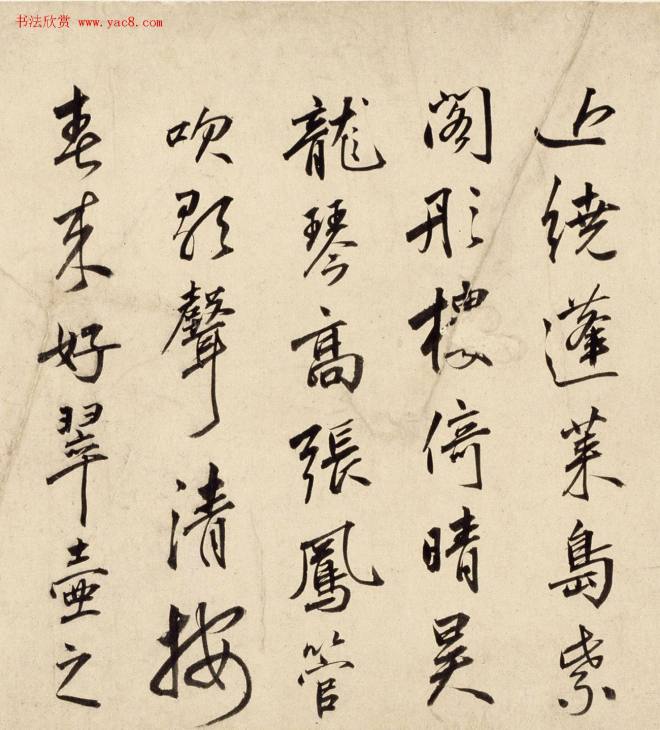 书法欣赏 www.yac8.com
上繞蓬萊島紫
閣彤樓倚晴昊
龍琴高張鳳管
吹歌聲清按
春来好翠壺之